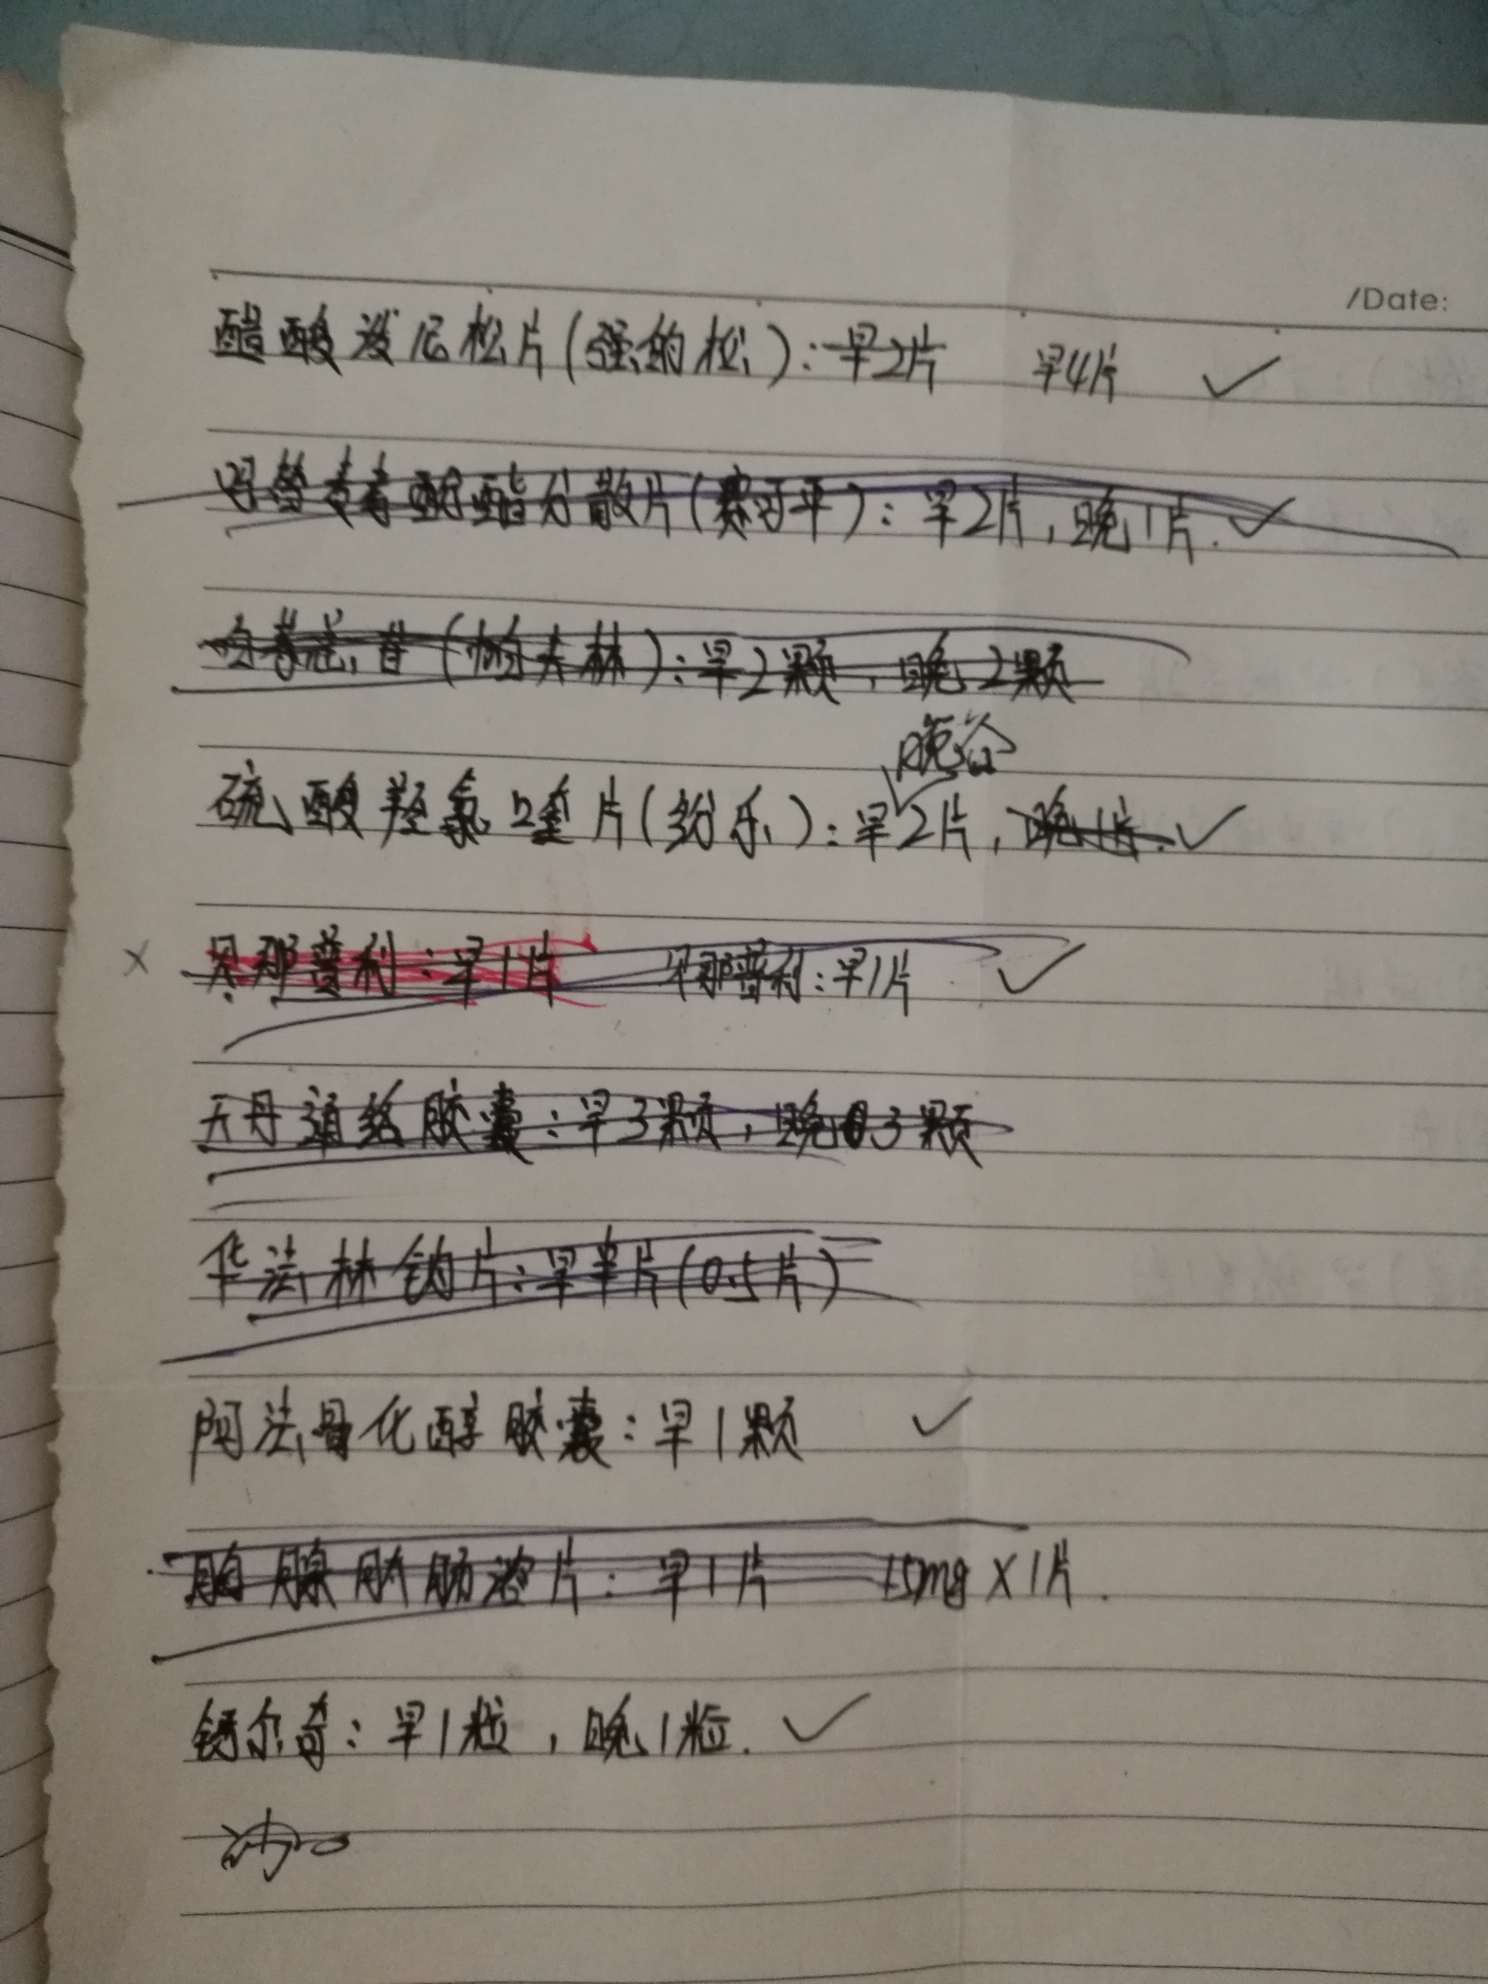 /Date:
醋酸泼尼松片(强的松):早2片 早4片 ✓
吗替麦考酚酯分散片(赛可平):早2片,晚1片. ✓
白芍总苷(帕夫林):早2颗,晚2颗
晚各
硫酸羟氯喹片(纷乐):早2片,晚1片. ✓
× 贝那普利:早1片 贝那普利:早1片 ✓
天丹通络胶囊:早3颗,晚3颗
华法林钠片:早半片(0.5片)
阿法骨化醇胶囊:早1颗 ✓
胸腺肽肠溶片:早1片 15mg×1片.
钙尔奇:早1粒,晚1粒. ✓